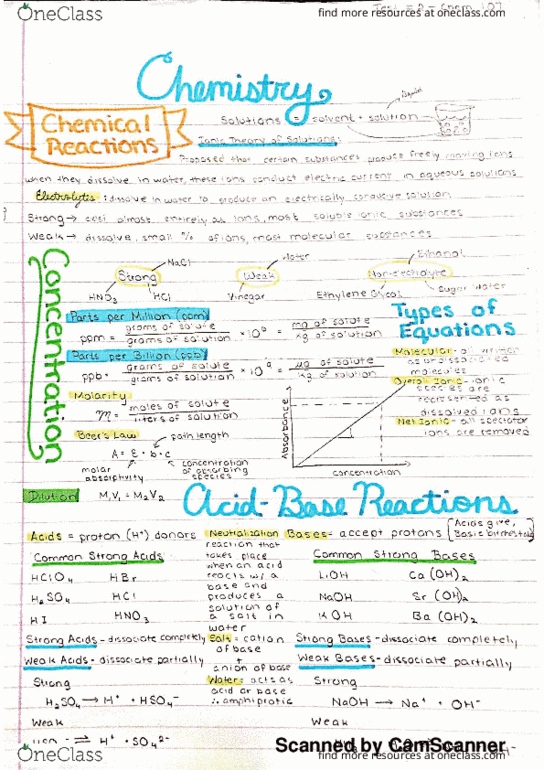 OneClass
find more resources at oneclass.com
Chemistry
Chemical
Reactions
Solutions = solvent + solution
Ionic Theory of Solutions:
Proposed that certain substances produce freely moving ions
when they dissolve in water, these ions conduct electric current in aqueous solutions
Electrolytes: dissolve in water to produce an electrically conductive solution
Strong → exist almost entirely as ions, most soluble ionic substances
Weak → dissolve, small % of ions, most molecular substances
Strong
NaCl
HNO3
HCl
Weak
Water
Vinegar
Non-electrolyte
Ethanol
Ethylene Glycol
Sugar Water
Concentration
Parts per Million (ppm)
ppm = grams of solute / grams of solution × 10⁶ = mg of solute / kg of solution
Parts per Billion (ppb)
ppb = grams of solute / grams of solution × 10⁹ = µg of solute / kg of solution
Molarity
M = moles of solute / liters of solution
Beer's Law
path length
A = ε · b · c
molar
absorptivity
concentration
of absorbing
species
Absorbance
concentration
Types of
Equations
Molecular - all written
as undissociated
molecules
Overall Ionic - ionic
species are
represented as
dissolved ions
Net Ionic - all spectator
ions are removed
Dilution M₁V₁ = M₂V₂
Acid-Base Reactions
Acids = proton (H⁺) donors
Common Strong Acids
HClO₄ HBr
H₂SO₄ HCl
HI HNO₃
Strong Acids - dissociate completely
Weak Acids - dissociate partially
Strong
H₂SO₄ → H⁺ + HSO₄⁻
Weak
⇌ H⁺ + SO₄²⁻
Neutralization
reaction that
takes place
when an acid
reacts w/ a
base and
produces a
solution of
a salt in
water
Salt = cation
of base
+
anion of base
Water: acts as
acid or base
∴ amphiprotic
Bases - accept protons
[Acids give,
Bases
Common Strong Bases
LiOH Ca(OH)₂
NaOH Sr(OH)₂
KOH Ba(OH)₂
Strong Bases - dissociate completely
Weak Bases - dissociate partially
Strong
NaOH → Na⁺ + OH⁻
Weak
Scanned by CamScanner
OneClass
find more resources at oneclass.com